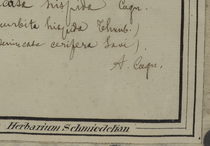 casa hispida Cogn.
curbita hispida Thunb.)
Benincasa cerifera Savi.)
A. Cogn.
Herbarium Schmiedelian